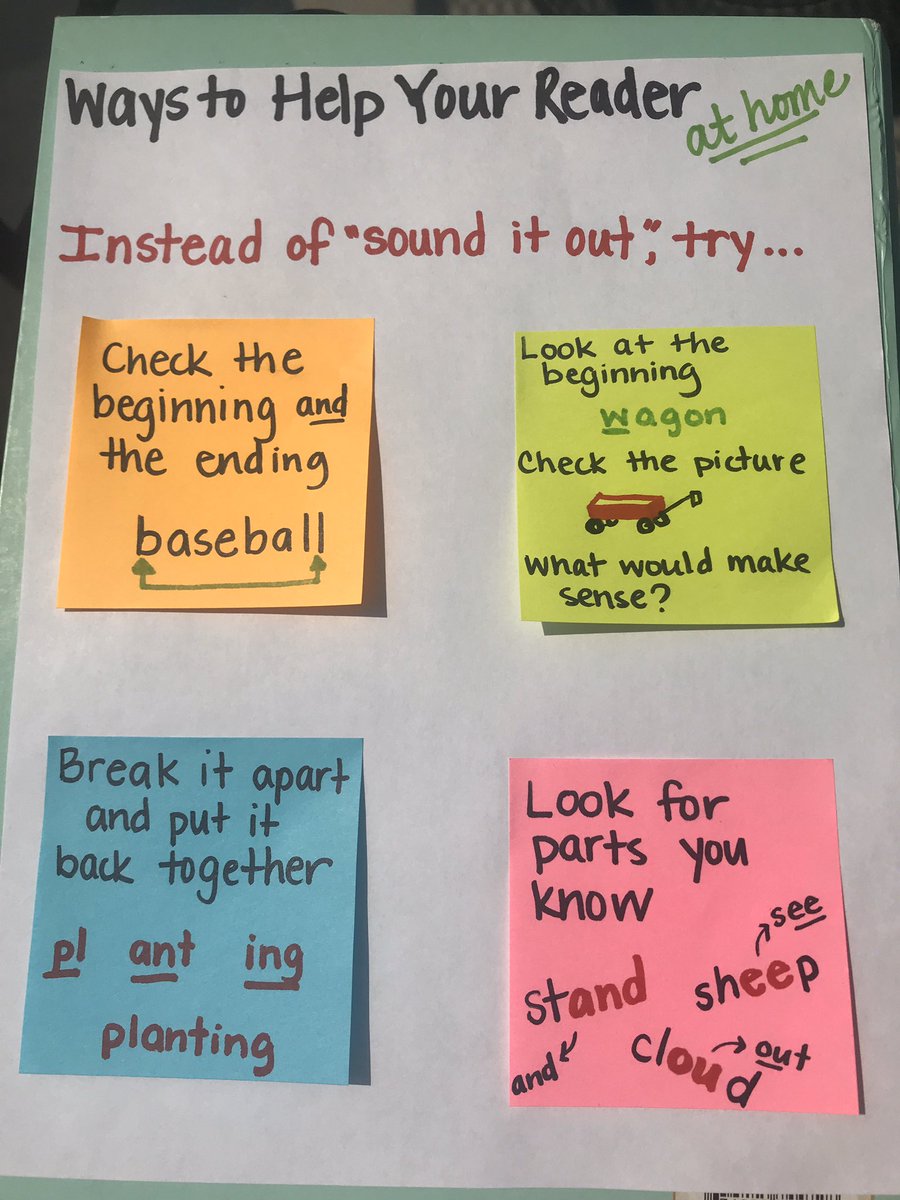 Ways to Help Your Reader
at home
Instead of "sound it out", try...
Check the
beginning and
the ending
baseball
Look at the
beginning
wagon
Check the picture
What would make
sense?
Break it apart
and put it
back together
pl ant ing
planting
Look for
parts you
know
see
stand sheep
and
cloud out